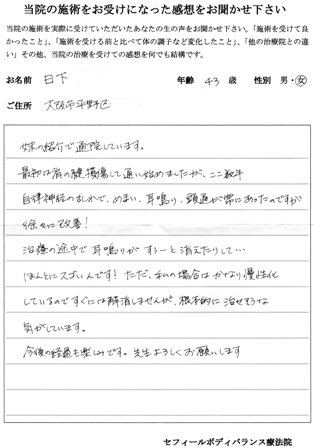 当院の施術をお受けになった感想をお聞かせ下さい
当院の施術を実際に受けていただいたあなたの生の声をお聞かせ下さい。「施術を受けて良
かったこと」、「施術を受ける前と比べて体の調子など変化したこと」、「他の治療院との違
い」その他、当院の治療を受けての感想を何でも結構です。
お名前 日下 年齢 43 歳 性別 男・女
ご住所 大阪市平野区
妹の紹介で通院しています。
最初は肩の腱損傷して通い始めましたが、ここ数年
自律神経の乱れで、めまい、耳鳴り、頭痛が常にあったのですが
徐々に改善!
治療の途中で耳鳴りがすぅーと消えたりして…
ほんとにスゴいんです!ただ、私の場合はかなり慢性化
しているのですぐには解消しませんが、根本的に治せそうな
気がしています。
今後の経過も楽しみです。先生よろしくお願いします
セフィールボディバランス療法院